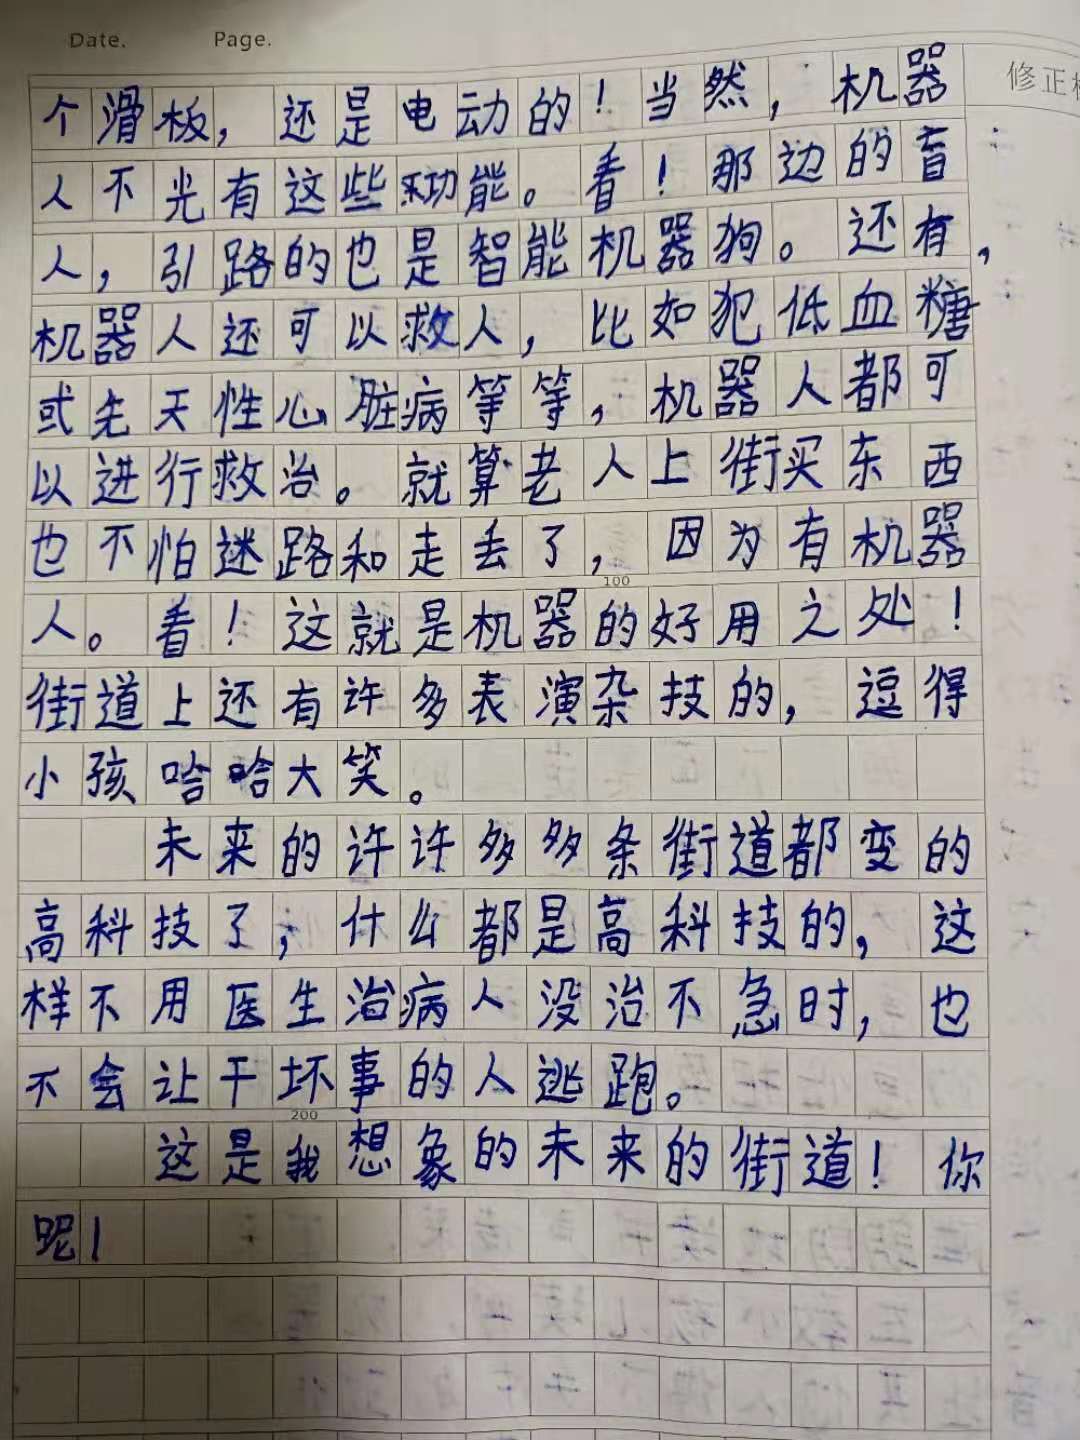 Date.    Page.
修正
个滑板，还是电动的！当然，机器
人不光有这些功能。看！那边的盲
人，引路的也是智能机器狗。还有，
机器人还可以救人，比如犯低血糖
或先天性心脏病等等，机器人都可
以进行救治。就算老人上街买东西
也不怕迷路和走丢了，因为有机器
100
人。看！这就是机器的好用之处！
街道上还有许多表演杂技的，逗得
小孩哈哈大笑。
未来的许许多多条街道都变的
高科技了，什么都是高科技的，这
样不用医生治病人没治不急时，也
不会让干坏事的人逃跑。
200
这是我想象的未来的街道！你
呢！